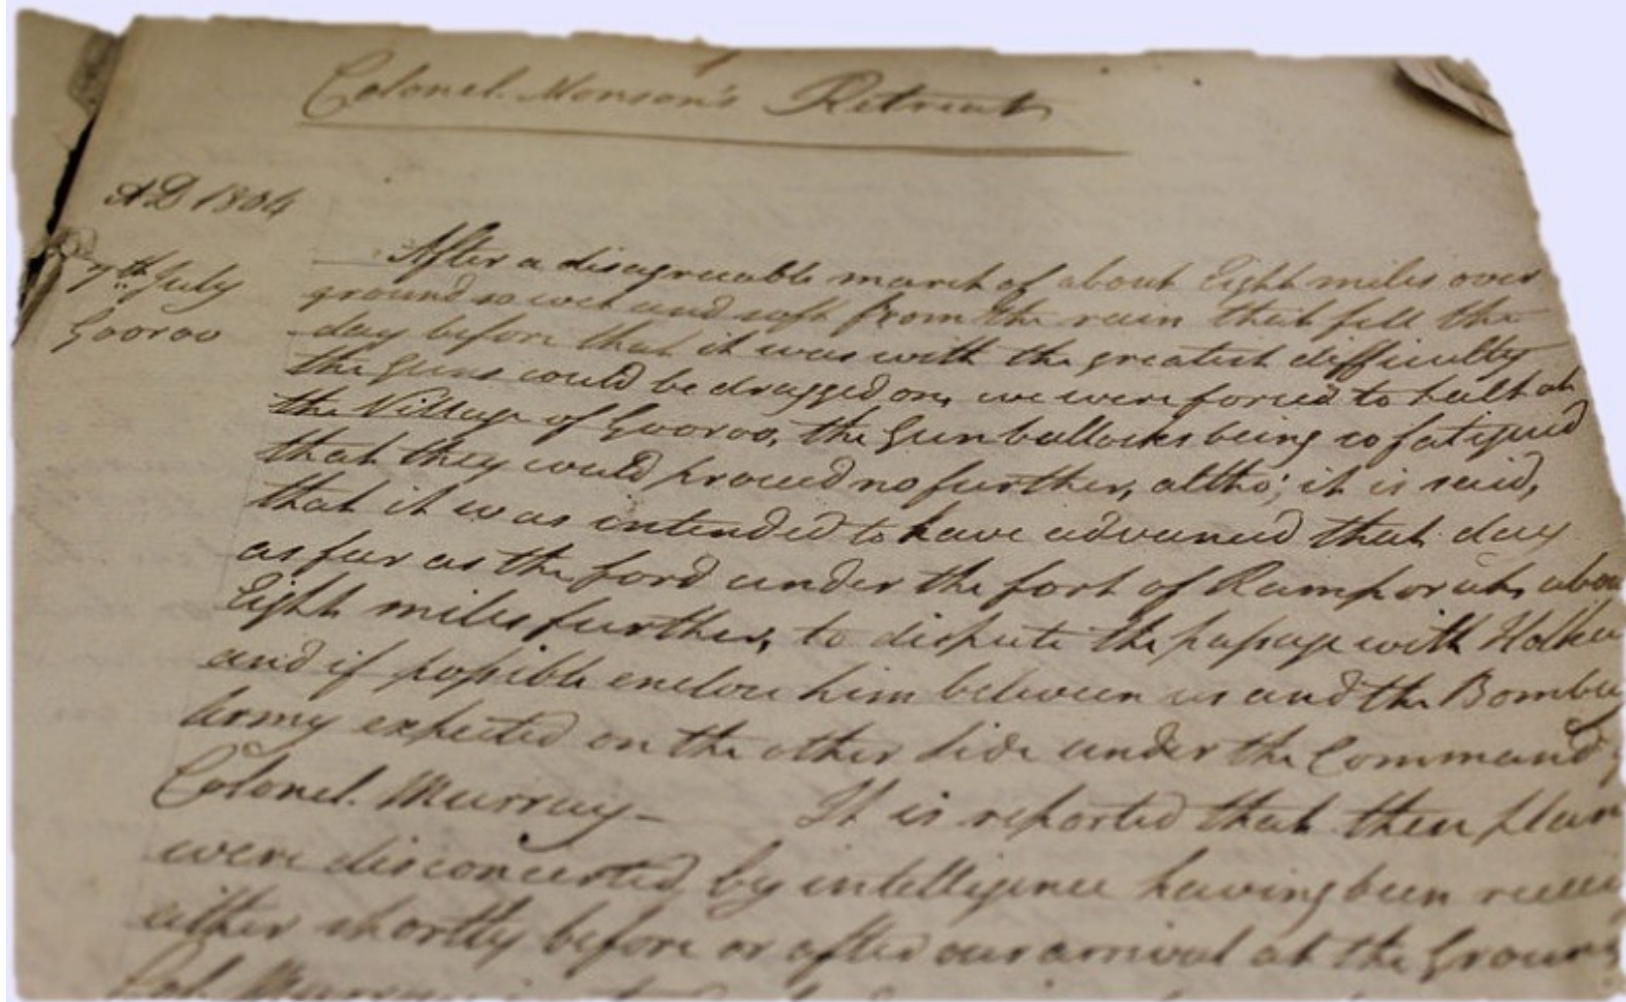 Colonel Monson's Retreat
AD 1804
7th July
Gooroo
After a disagreeable march of about Eight miles over
ground so wet and soft from the rain that fell the
day before that it was with the greatest difficulty
the Guns could be dragged on, we were forced to halt at
the Village of Gooroo, the Gun bullocks being so fatigued
that they could proceed no further, altho' it is said,
that it was intended to have advanced that day
as far as the ford under the fort of Ramporah, abou
Eight miles further, to dispute the passage with Holka
and if possible enclose him between us and the Bombay
Army expected on the other side under the Command
Colonel Murray - It is reported that these plan
were disconcerted by intelligence having been recei
either shortly before or after our arrival at the Ground
Col. Murray